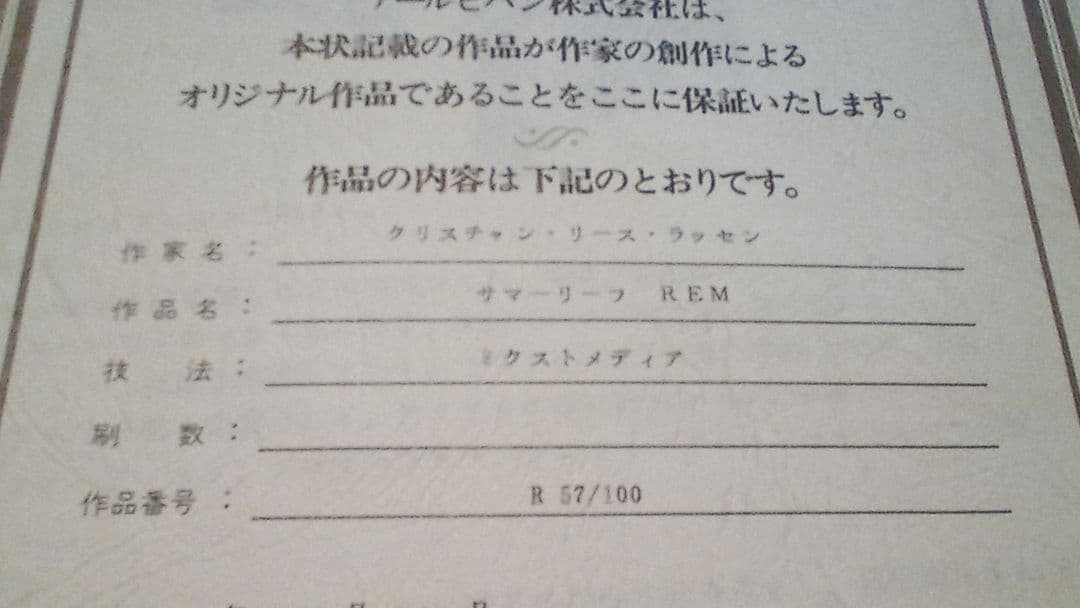 アールビバン株式会社は、
本状記載の作品が作家の創作による
オリジナル作品であることをここに保証いたします。
作品の内容は下記のとおりです。
作家名： クリスチャン・リース・ラッセン
作品名： サマーリーフ REM
技 法： ミクストメディア
刷 数：
作品番号： R 57/100